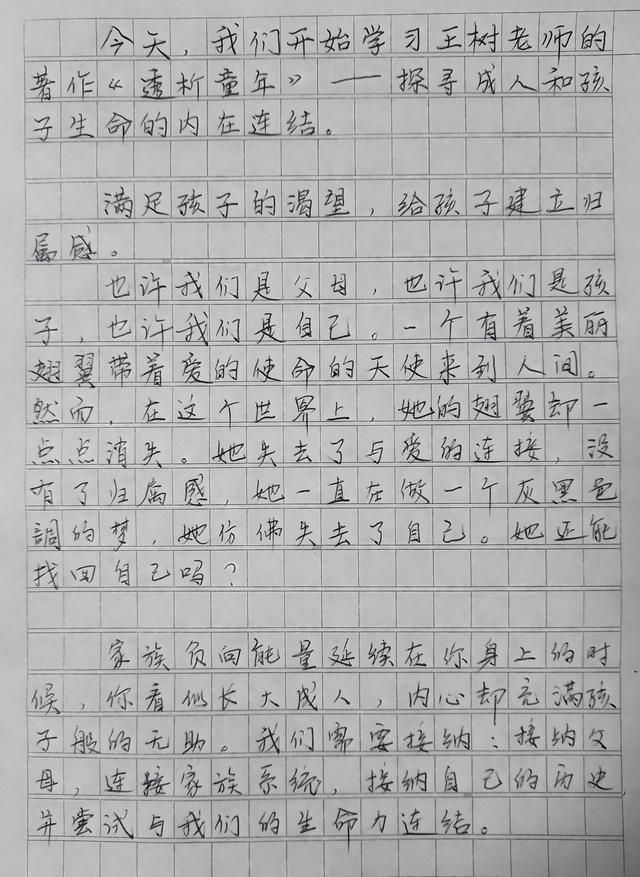 今天，我们开始学习王树老师的
著作《透析童年》——探寻成人和孩
子生命的内在连结。
满足孩子的渴望，给孩子建立归
属感。
也许我们是父母，也许我们是孩
子，也许我们是自己。一个有着美丽
翅翼带着爱的使命的天使来到人间。
然而，在这个世界上，她的翅翼却一
点点消失。她失去了与爱的连接，没
有了归属感，她一直在做一个灰黑色
調的梦，她仿佛失去了自己。她还能
找回自己吗？
家族负向能量延续在你身上的时
候，你看似长大成人，内心却充满孩
子般的无助。我们需要接纳：接纳父
母，连接家族系统，接纳自己的历史
并尝试与我们的生命力连结。